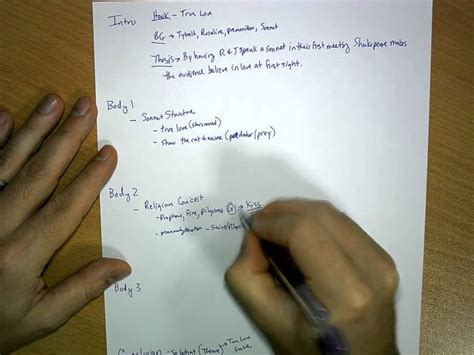 Intro Hook – True Love
BG → Tybalt, Rosaline, premonition, Sonnet
Thesis → By having R & J speak a sonnet in their first meeting Shakespere makes
the audience believe in love at first sight.
Body 1
– Sonnet Structure
– true love (starcrossed)
– show the cat & mouse (predator/prey)
Body 2
– Religious Conceit
– Pilgrims → Kiss
– Saint/
Body 3
Conclusion – So What (Theme) → True Love